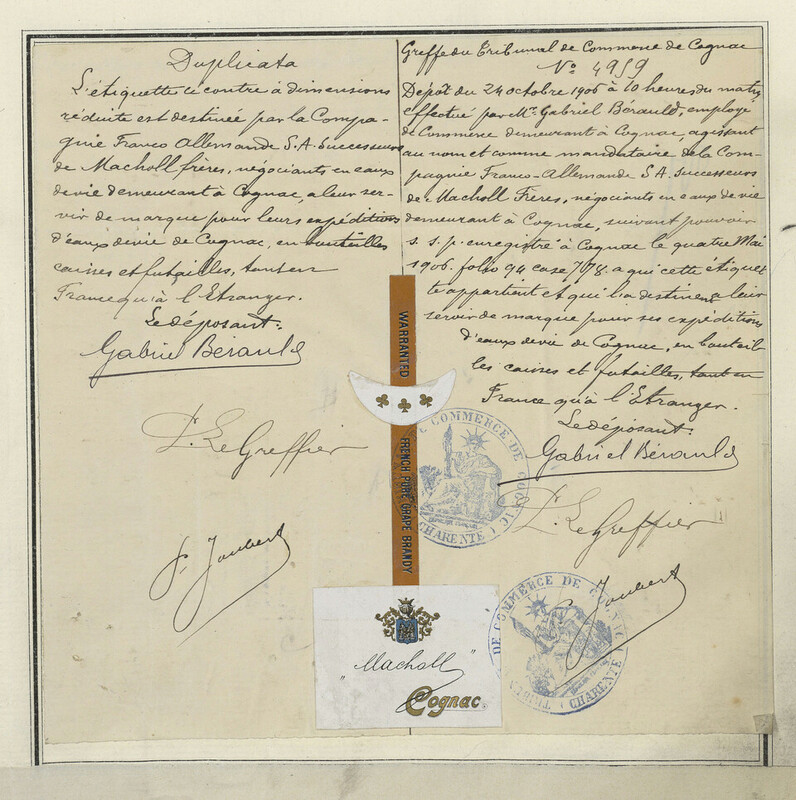 Duplicata
L'étiquette ci contre à dimensions
réduite est destinée par la Compa-
gnie Franco Allemande S.A. Successeurs
de Macholl frères, négociants en eaux
de vie demeurant à Cognac, a leur ser-
vir de marque pour leurs expéditions
d'eaux de vie de Cognac, en bouteilles
caisses et futailles, tant en
France qu'à l'Etranger.
Le déposant:
Gabriel Bérauld
P. Le Greffier
P. Joubert
Greffe du Tribunal de Commerce de Cognac
No 4959
Dépôt du 24 octobre 1906 à 10 heures du matin
effectué par Mr. Gabriel Bérauld, employé
de Commerce demeurant à Cognac, agissant
au nom et comme mandataire de la Com-
pagnie Franco-Allemande S.A. Successeurs
de Macholl Frères, négociants en eaux de vie
demeurant à Cognac, suivant pouvoir
s. s. p. enregistré à Cognac le quatre Mai
1906. folio 94 case 7078. a qui cette étiquet
te appartient et qui l'a destinée a leur
servir de marque pour ses expéditions
d'eaux de vie de Cognac, en bouteil
les caisses et futailles, tant en
France qu'à l'Etranger.
Le déposant.
Gabriel Bérauld
P. Le Greffier
Joubert
WARRANTED
FRENCH PURE GRAPE BRANDY
"Macholl"
Cognac
COMMERCE DE COGNAC
CHARENTE
DE COMMERCE DE COGNAC
CHARENTE